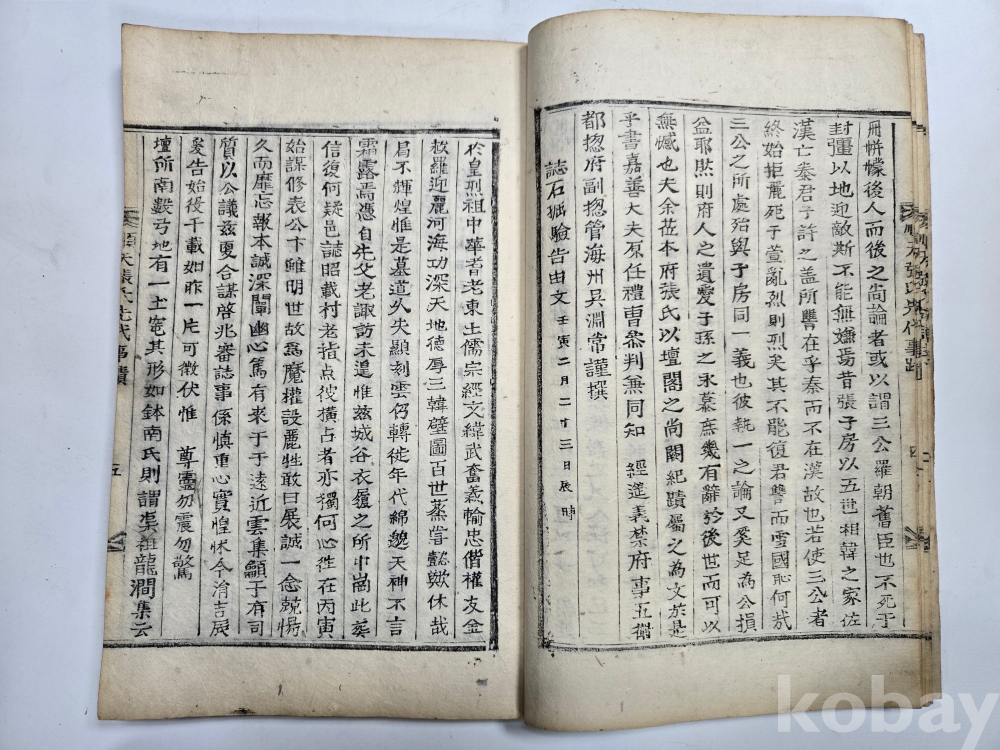 冊帡幪後人而後之尚論者或以謂三公羅朝舊臣也不死于
封疆以地迎敵斯不能無嫌焉昔張子房以五世相韓之家佐
漢亡秦君子許之盖所讐在乎秦而不在漢故也若使三公者
終始拒麗死于萱亂烈則烈矣其不能復君讐而雪國恥何哉
三公之所處殆與子房同一義也彼執一之論又奚足為公損
益耶然則府人之遺愛子孫之永慕庶幾有辭於後世而可以
無憾也夫余莅本府張氏以壇閣之尚闕紀蹟屬之為文於是
乎書嘉善大夫原任禮曹叅判兼同知 經筵義禁府事五衛
都摠府副摠管海州吳淵常謹撰
誌石掘驗告由文 壬寅二月二十三日辰時
於皇烈祖中華耆老東土儒宗經文緯武奮義輸忠偕權友金
救羅迎麗河海功深天地德厚三韓壁圖百世蒸嘗懿歟休哉
局不輝煌惟是墓道外失顯刻雲仍轉徙年代綿邈天神不言
霜露焉憑自先父老諏訪未遑惟兹城谷衣履之所中崗此葬
信復何疑邑誌昭載村老指点彼橫占者亦獨何心徃在丙寅
始謀修表公卞雖明世故為魔權設麗牲敢曰展誠一念兢惕
久而靡忘報本誠深闡幽心篤有來于于遠近雲集籲于有司
質以公議兹夏合謀啓兆審誌事係慎重心實惶怵今治吉辰
爰告始役千載如昨一片可徵伏惟 尊靈勿震勿驚
壇所南數弓地有一土窀其形如鉢南氏則謂渠祖龍澗集云
張氏先代事蹟
五
kobay